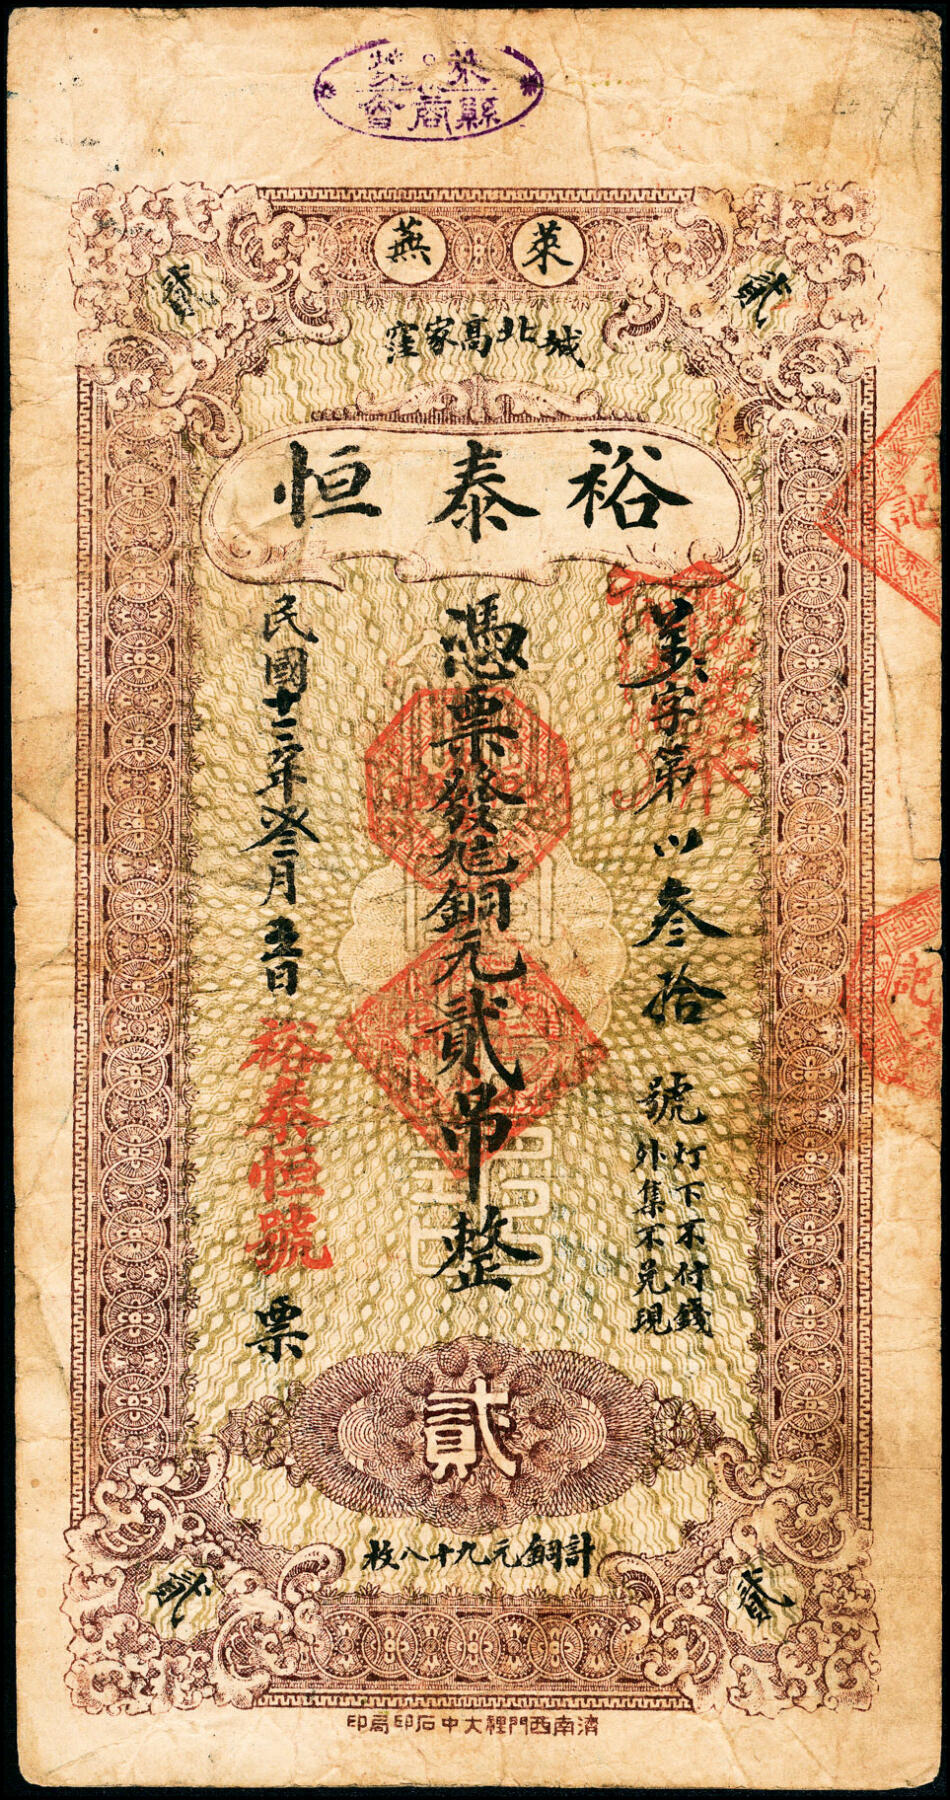 萊蕪
縣商會
萊蕪
貳
貳
城北高家窪
裕泰恒
字第
叁拾
號
灯下不付錢
外集不兑現
憑票發兌銅元貳吊整
民國十二年癸三月
裕泰恒號
票
貳
計銅元九十八枚
貳
貳
濟南西門裡大中石印局印